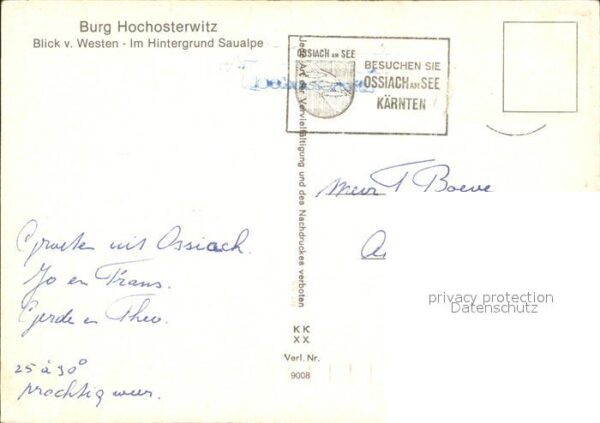 Burg Hochosterwitz
Blick v. Westen - Im Hintergrund Saualpe
OSSIACH AM SEE
BESUCHEN SIE
OSSIACH AM SEE
KÄRNTEN
Jede Art der Vervielfältigung und des Nachdruckes verboten
T Boeve
Groeten uit Ossiach.
Jo en Frans.
Gerda en Theo.
25 à 30°
prachtig weer.
privacy protection
Datenschutz
KK
XX
Verl. Nr.
9008